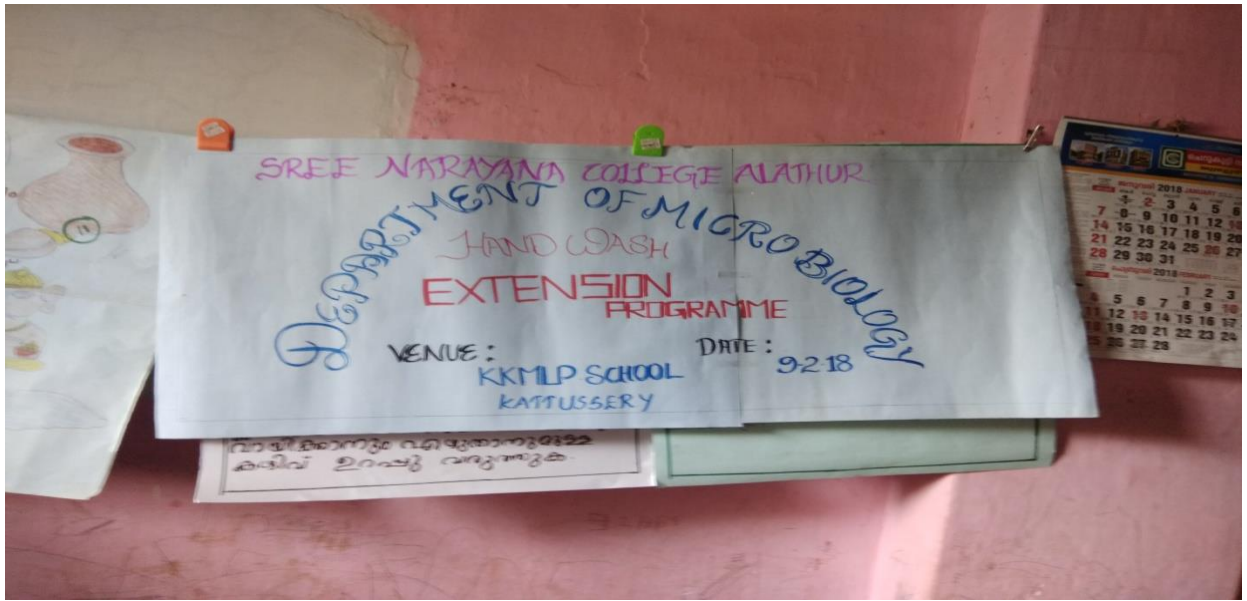 SREE NARAYANA COLLEGE ALATHUR
DEPARTMENT OF MICRO BIOLOGY
HAND WASH
EXTENSION
PROGRAMME
VENUE :
KKMLP SCHOOL
KATTUSSERY
DATE :
9-2-18
വായിക്കാനും എഴുതാനുമുള്ള
കഴിവ് ഉറപ്പു വരുത്തുക.
ജനുവരി 2018 JANUARY
1 2 3 4 5 6
7 8 9 10 11 12 13
14 15 16 17 18 19 20
21 22 23 24 25 26 27
28 29 30 31
ഫെബ്രുവരി 2018 FEBRUARY
1 2 3
4 5 6 7 8 9 10
11 12 13 14 15 16 17
18 19 20 21 22 23 24
25 26 27 28